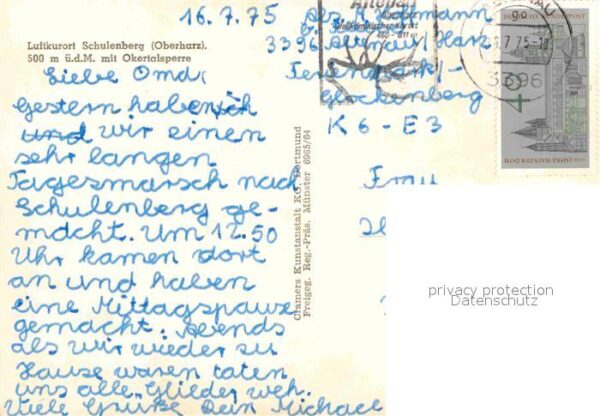 16.7.75
Luftkurort Schulenberg (Oberharz).
500 m ü.d.M. mit Okertalsperre
Liebe Oma,
Gestern haben ich
und wir einen
sehr langen
Tagesmarsch nach
Schulenberg ge-
macht. Um 12.50
Uhr kamen dort
an und haben
eine Mittagspause
gemacht. Abends
als wir wieder zu
Hause waren taten
uns alle Glieder weh.
Viele Grüße Dein Michael
Cramers Kunstanstalt KG, Dortmund
Freigeg. Reg.-Präs. Münster 6965/64
Abs. H. Hoffmann
3396 Altenau/Harz
Ferienpark
Glockenberg
K 6 - E 3
Frau
Altenau
450-911 m
.7.75-18
3396
DEUTSCHE BUNDESPOST
JAHRE MAINZER DOM
privacy protection
Datenschutz